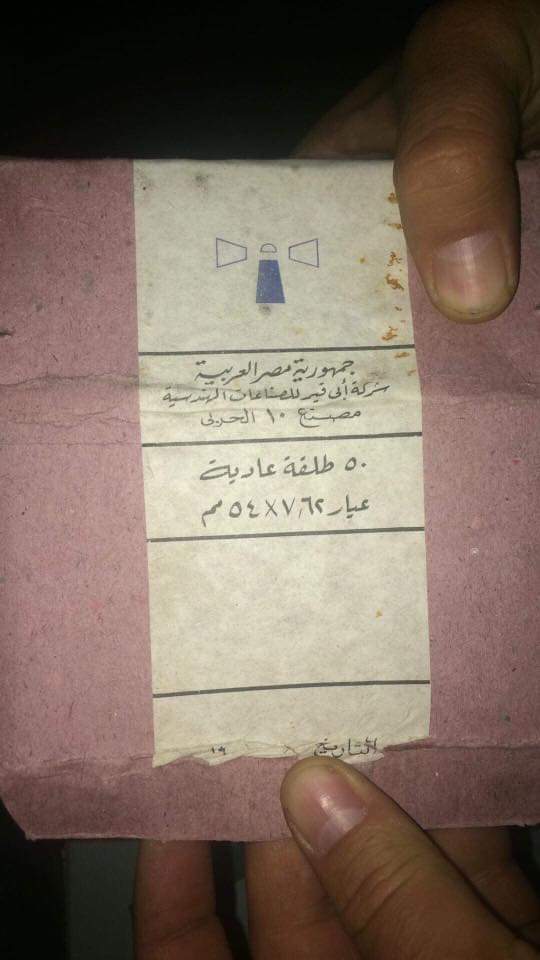 جمهورية مصر العربية
شركة أبى قير للصناعات الهندسية
مصنع ١٠ الحربى
٥٠ طلقة عادية
عيار ٧,٦٢×٥٤ مم
التاريخ ١٩